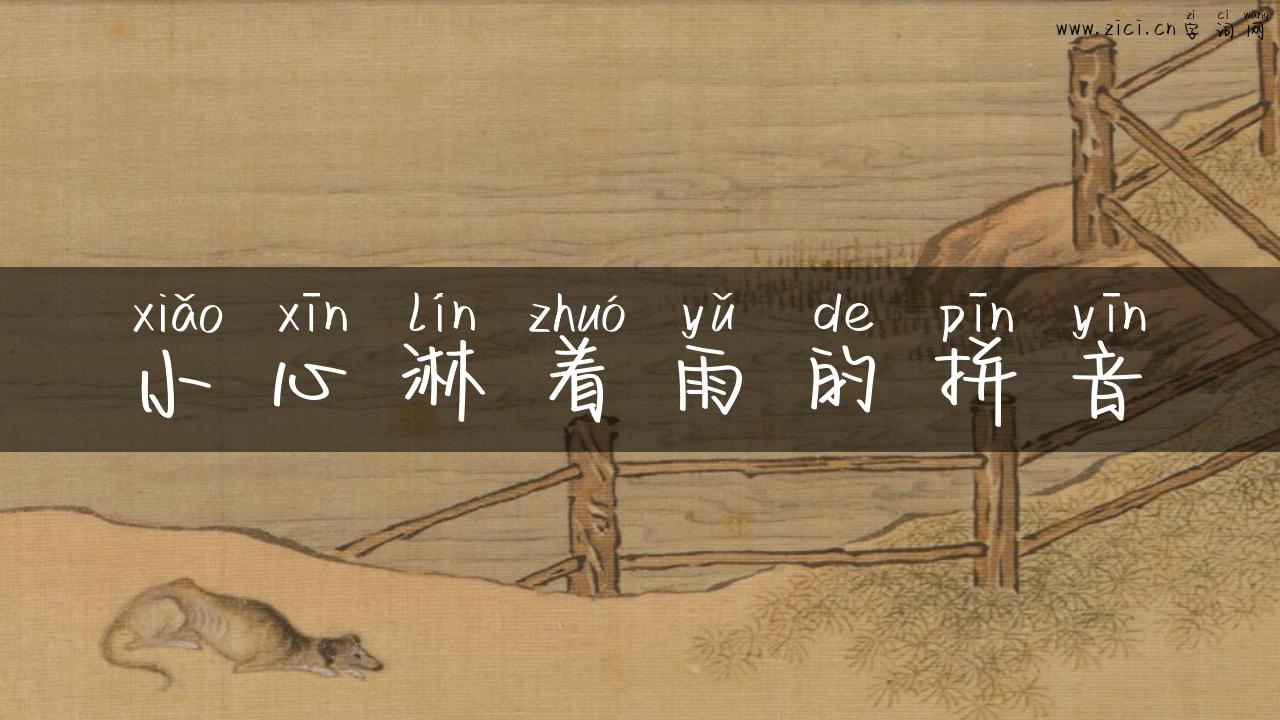 zi ci wang
www.zici.cn 字词网
xiǎo xīn lín zhuó yǔ de pīn yīn
小心淋着雨的拼音